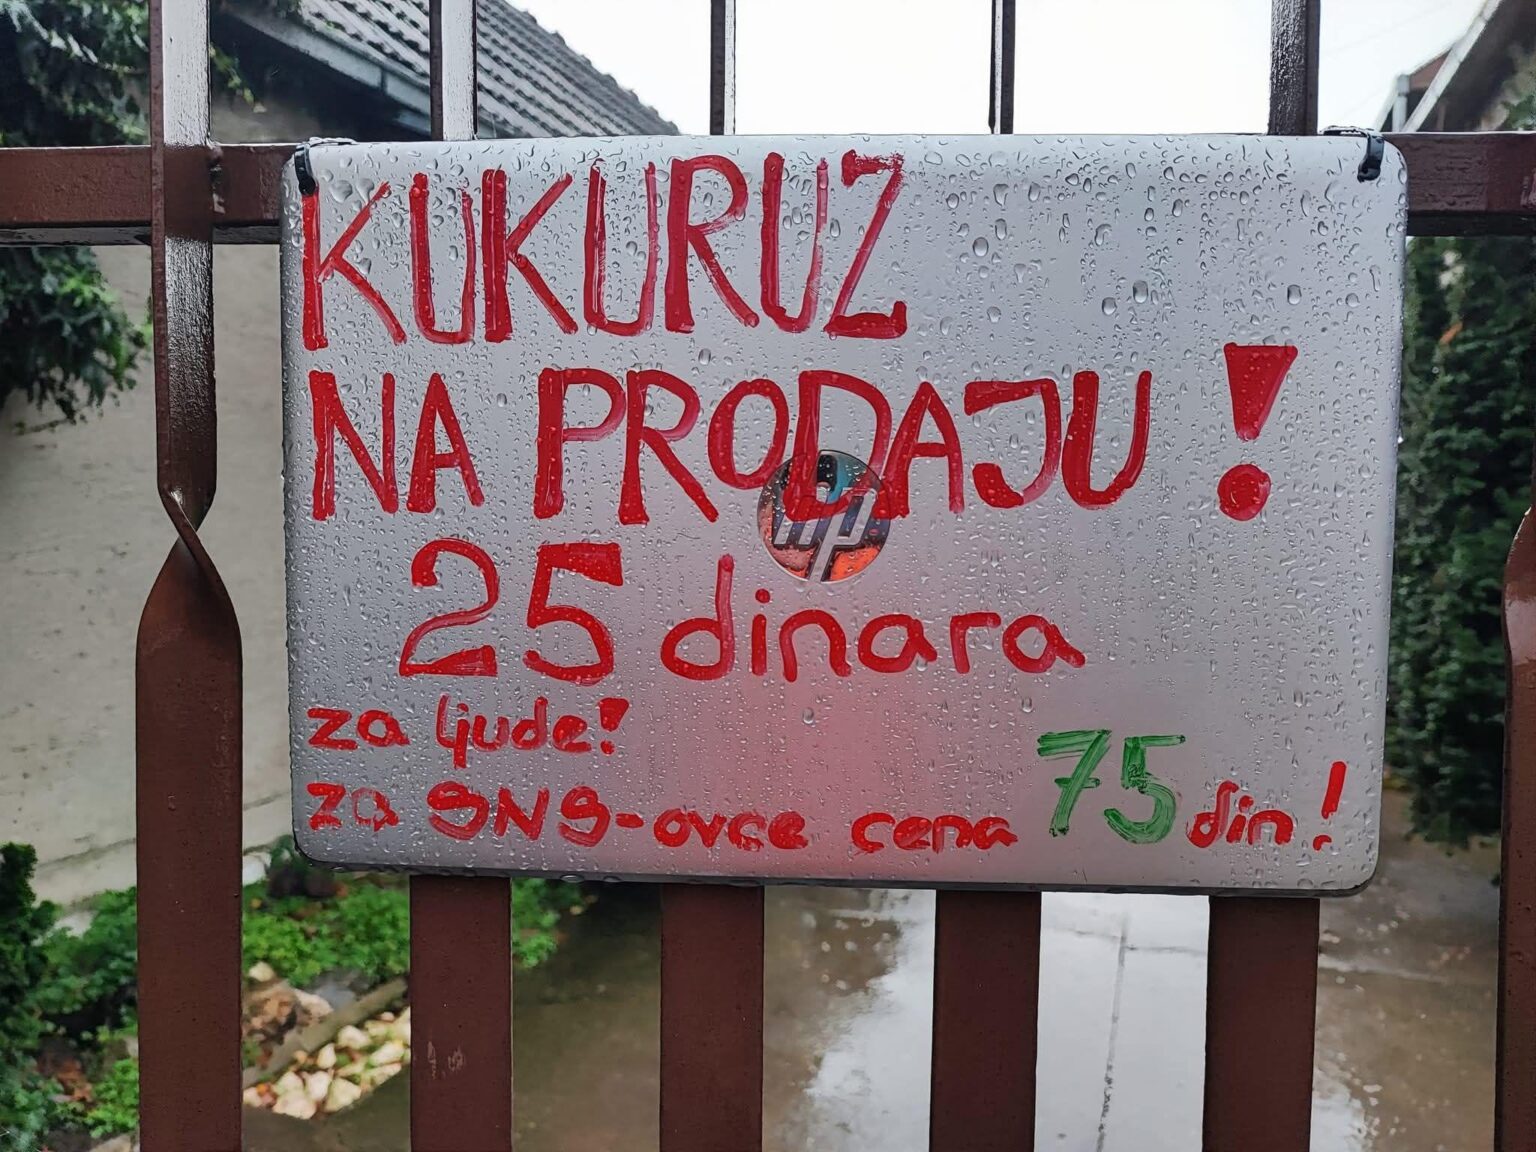 KUKURUZ
NA PRODAJU!
hp
25 dinara
za ljude!
za SNS-ovce cena 75 din!